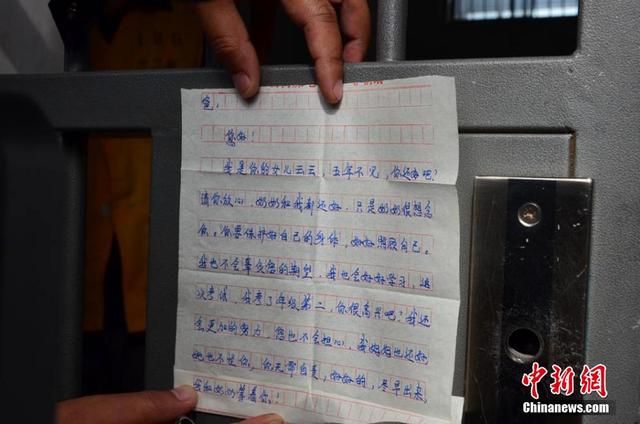 爸:
您好!
我是你的女儿云云,五年不见,你还好吧?
请你放心,奶奶和我都还好,只是奶奶很想念
你。你要保护好自己的身体,好好照顾自己。
我也不会辜负您的期望,我也会好好学习,这
次考试,我考了年级第二,你很高兴吧?我还
会更加的努力,您也不会担心,我妈妈也还好
她也不怪你。你无需自责,好好的,尽早出来,
我和奶奶等着你!
中新网
Chinanews.com